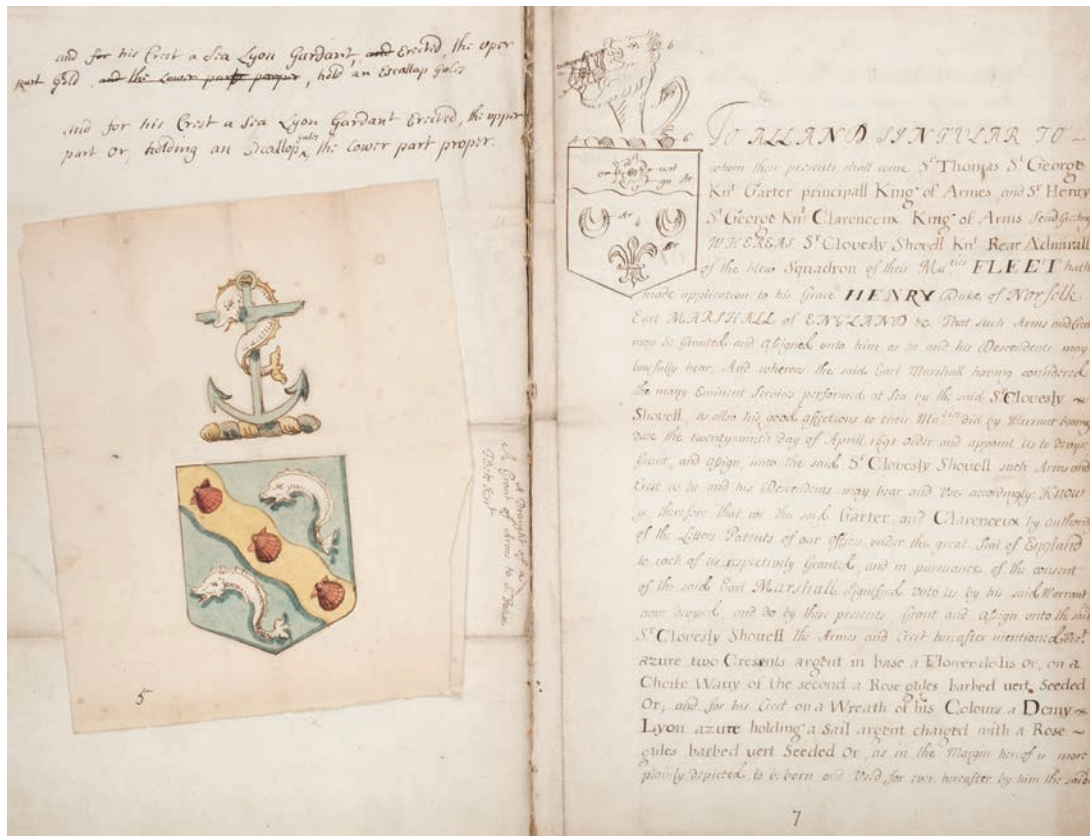 and for his Crest a Sea Lyon Gardant, and Erected, the uper
part Gold, and the Lower part proper, hold an Escallop Gules
and for his Crest a Sea Lyon Gardant Erected, the upper
part Or, holding an Escallop gules, the Lower part proper.
A Draught of a
Grant of Arms to Sr
5
TO ALL AND SINGULAR TO
whom these presents shall come Sr Thomas St George
Knt Garter principall King of Armes, and Sr Henry
St George Knt Clarenceux King of Arms Send Greeting
WHEREAS Sr Clovesly Shovell Knt Rear Admirall
of the blew Squadron of their Maties FLEET hath
made application to his Grace HENRY Duke of Norfolk
Earl MARSHALL of ENGLAND &c. That such Arms and Crest
may be Granted and assigned unto him as he and his Descendents may
lawfully bear. And whereas the said Earl Marshall having considered
the many Eminent Services performed at Sea by the said Sr Clovesly ~
Shovell, as also his good affections to their Maties did by Warrant bearing
date the twenty-ninth day of Aprill 1691 order and appoint us to devise
Grant, and assign unto the said Sr Clovesly Shovell such Arms and
Crest as he and his Descendents may bear and Use accordingly: Know
ye therefore that we the said Garter and Clarenceux by authority
of the Letters Patents of our offices under the great Seal of England
to each of us respectively Granted, and in pursuance of the consent
of the said Earl Marshall signified unto us by his said Warrant
have devised, and do by these presents Grant and assign unto the said
Sr Clovesly Shovell the Armes and Crest hereafter mentioned Viz:
azure two Cresents argent in base a Flower de lis Or, on a
Cheife Wavy of the second a Rose gules barbed vert Seeded
Or, and for his Crest on a Wreath of his Colours a Demy ~
Lyon azure holding a Sail argent charged with a Rose ~
gules barbed vert Seeded Or, as in the Margin hereof is more
plainly depicted to be born and Used for ever hereafter by him the said
7